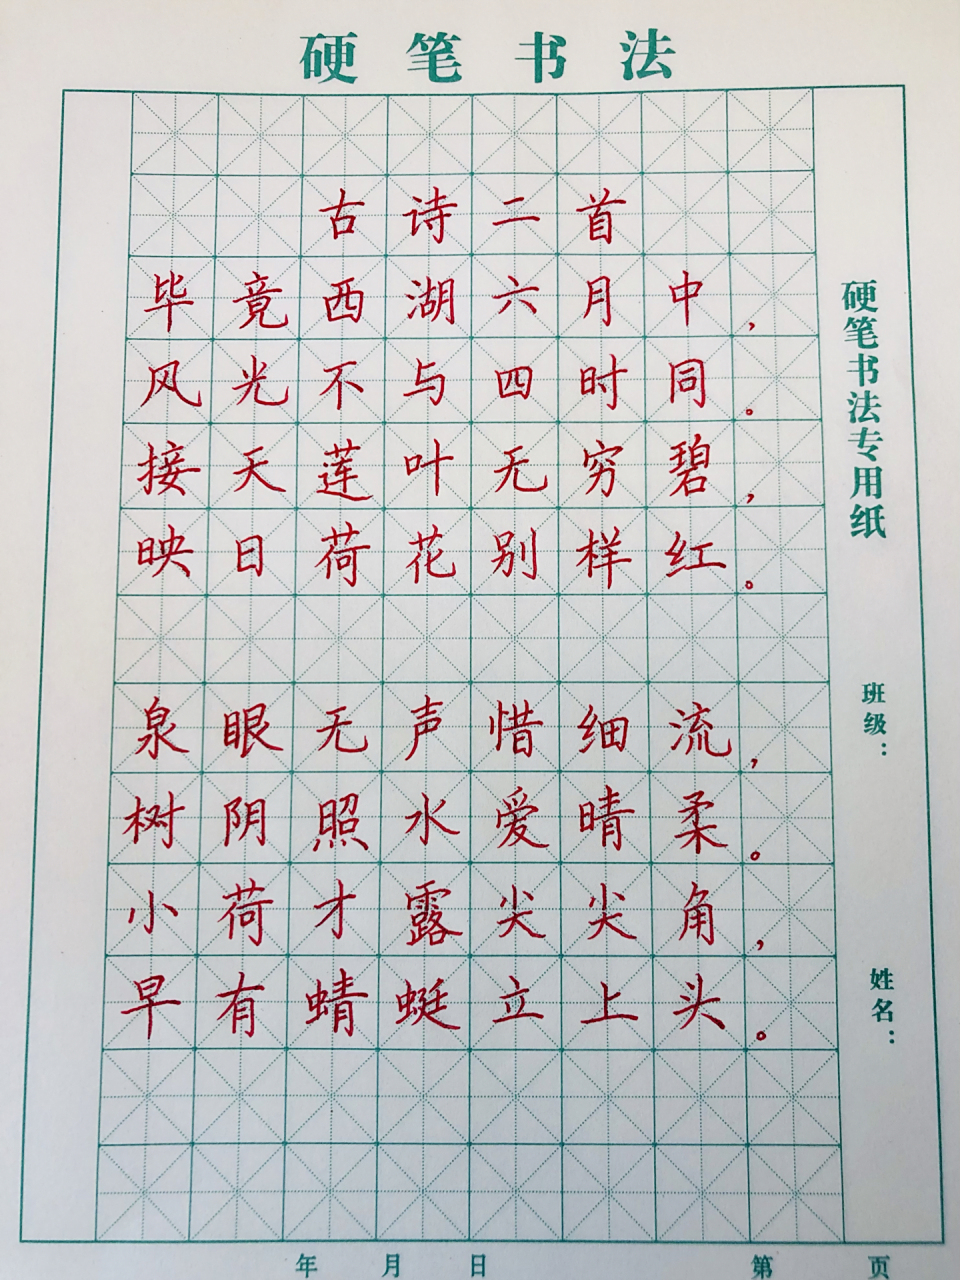 硬笔书法
古诗二首
毕竟西湖六月中，
风光不与四时同。
接天莲叶无穷碧，
映日荷花别样红。
泉眼无声惜细流，
树阴照水爱晴柔。
小荷才露尖尖角，
早有蜻蜓立上头。
硬笔书法专用纸
班级：
姓名：
年 月 日
第 页